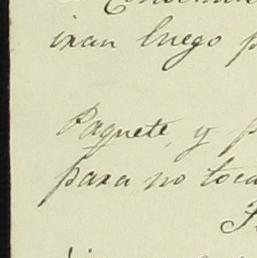 ixan luego p
Paquete, y p
para no toca